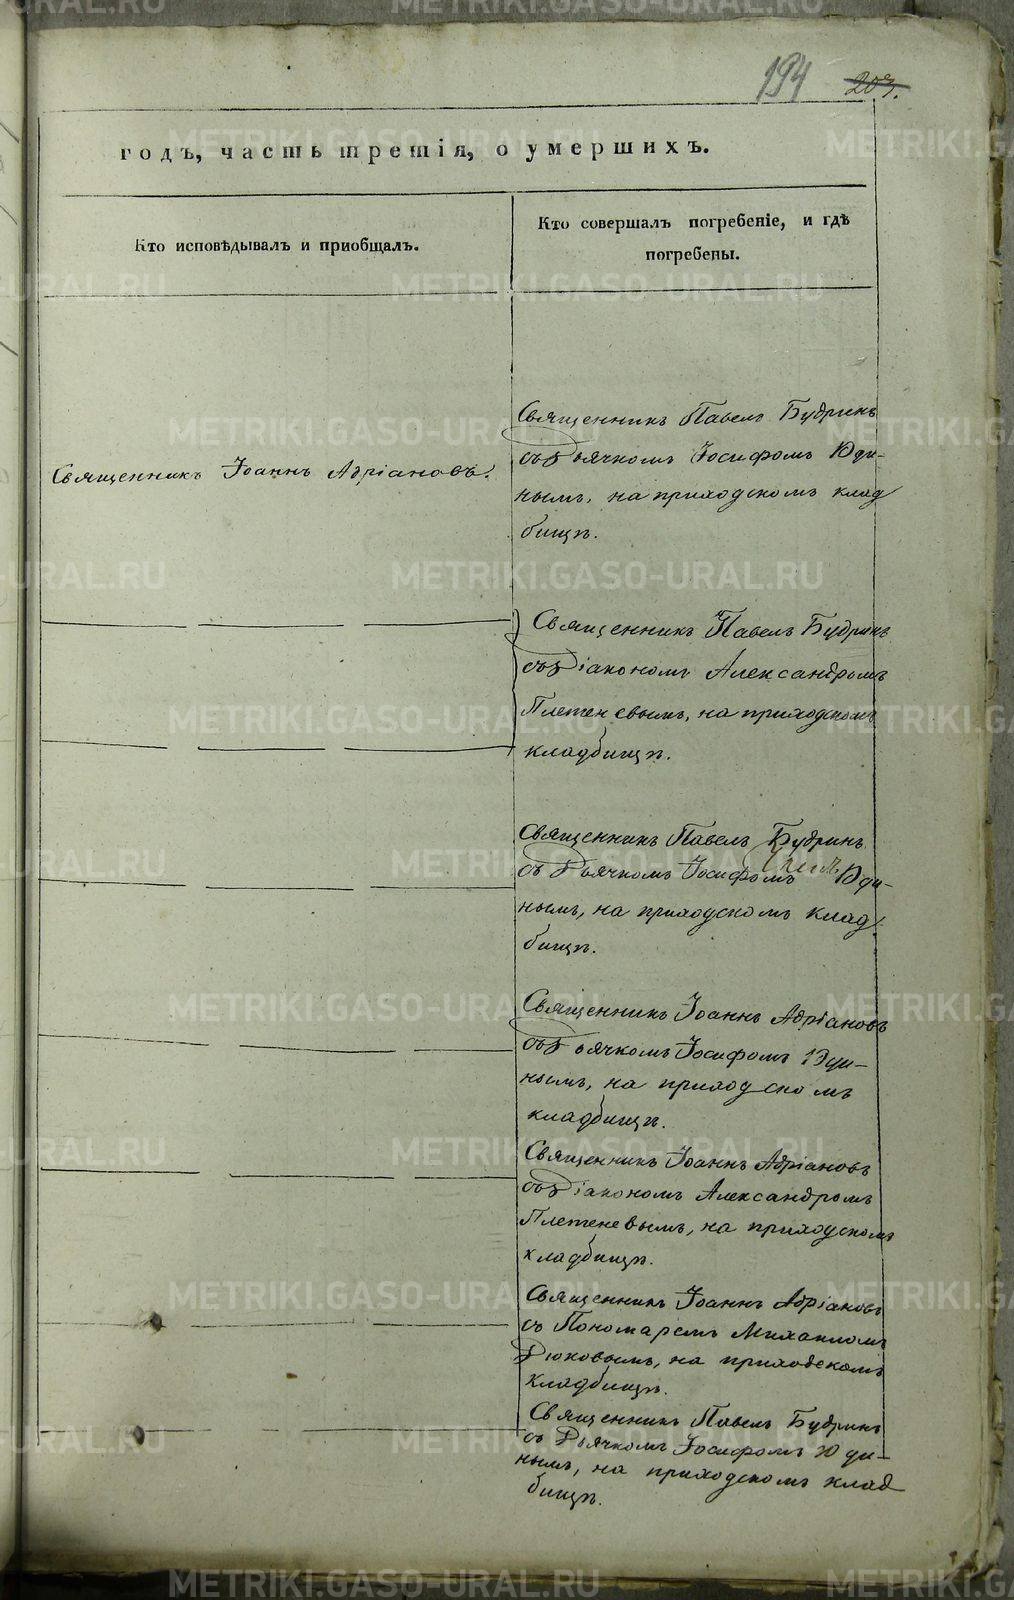 194 203.
годъ, часть третія, о умершихъ.
Кто исповѣдывалъ и приобщалъ.
Кто совершалъ погребеніе, и гдѣ
погребены.
Священникъ Іоаннъ Адріановъ.
Священникъ Павелъ Будринъ
съ Дьячкомъ Іосифомъ Юди-
нымъ, на приходскомъ клад
бищѣ.
Священникъ Павелъ Будринъ
съ Діакономъ Александромъ
Плетеневымъ, на приходскомъ
кладбищѣ.
Священникъ Павелъ Будринъ
съ Дьячкомъ Іосифомъ Юди-
нымъ, на приходскомъ клад
бищѣ.
Священникъ Іоаннъ Адріановъ
съ Дьячкомъ Іосифомъ Юди-
нымъ, на приходскомъ
кладбищѣ.
Священникъ Іоаннъ Адріановъ
съ Діакономъ Александромъ
Плетеневымъ, на приходскомъ
кладбищѣ.
Священникъ Іоаннъ Адріановъ
съ Пономаремъ Михаиломъ
Дюковымъ, на приходскомъ
кладбищѣ.
Священникъ Павелъ Будринъ
съ Дьячкомъ Іосифомъ Юди-
нымъ, на приходскомъ клад
бищѣ.
METRIKI.GASO-URAL.RU